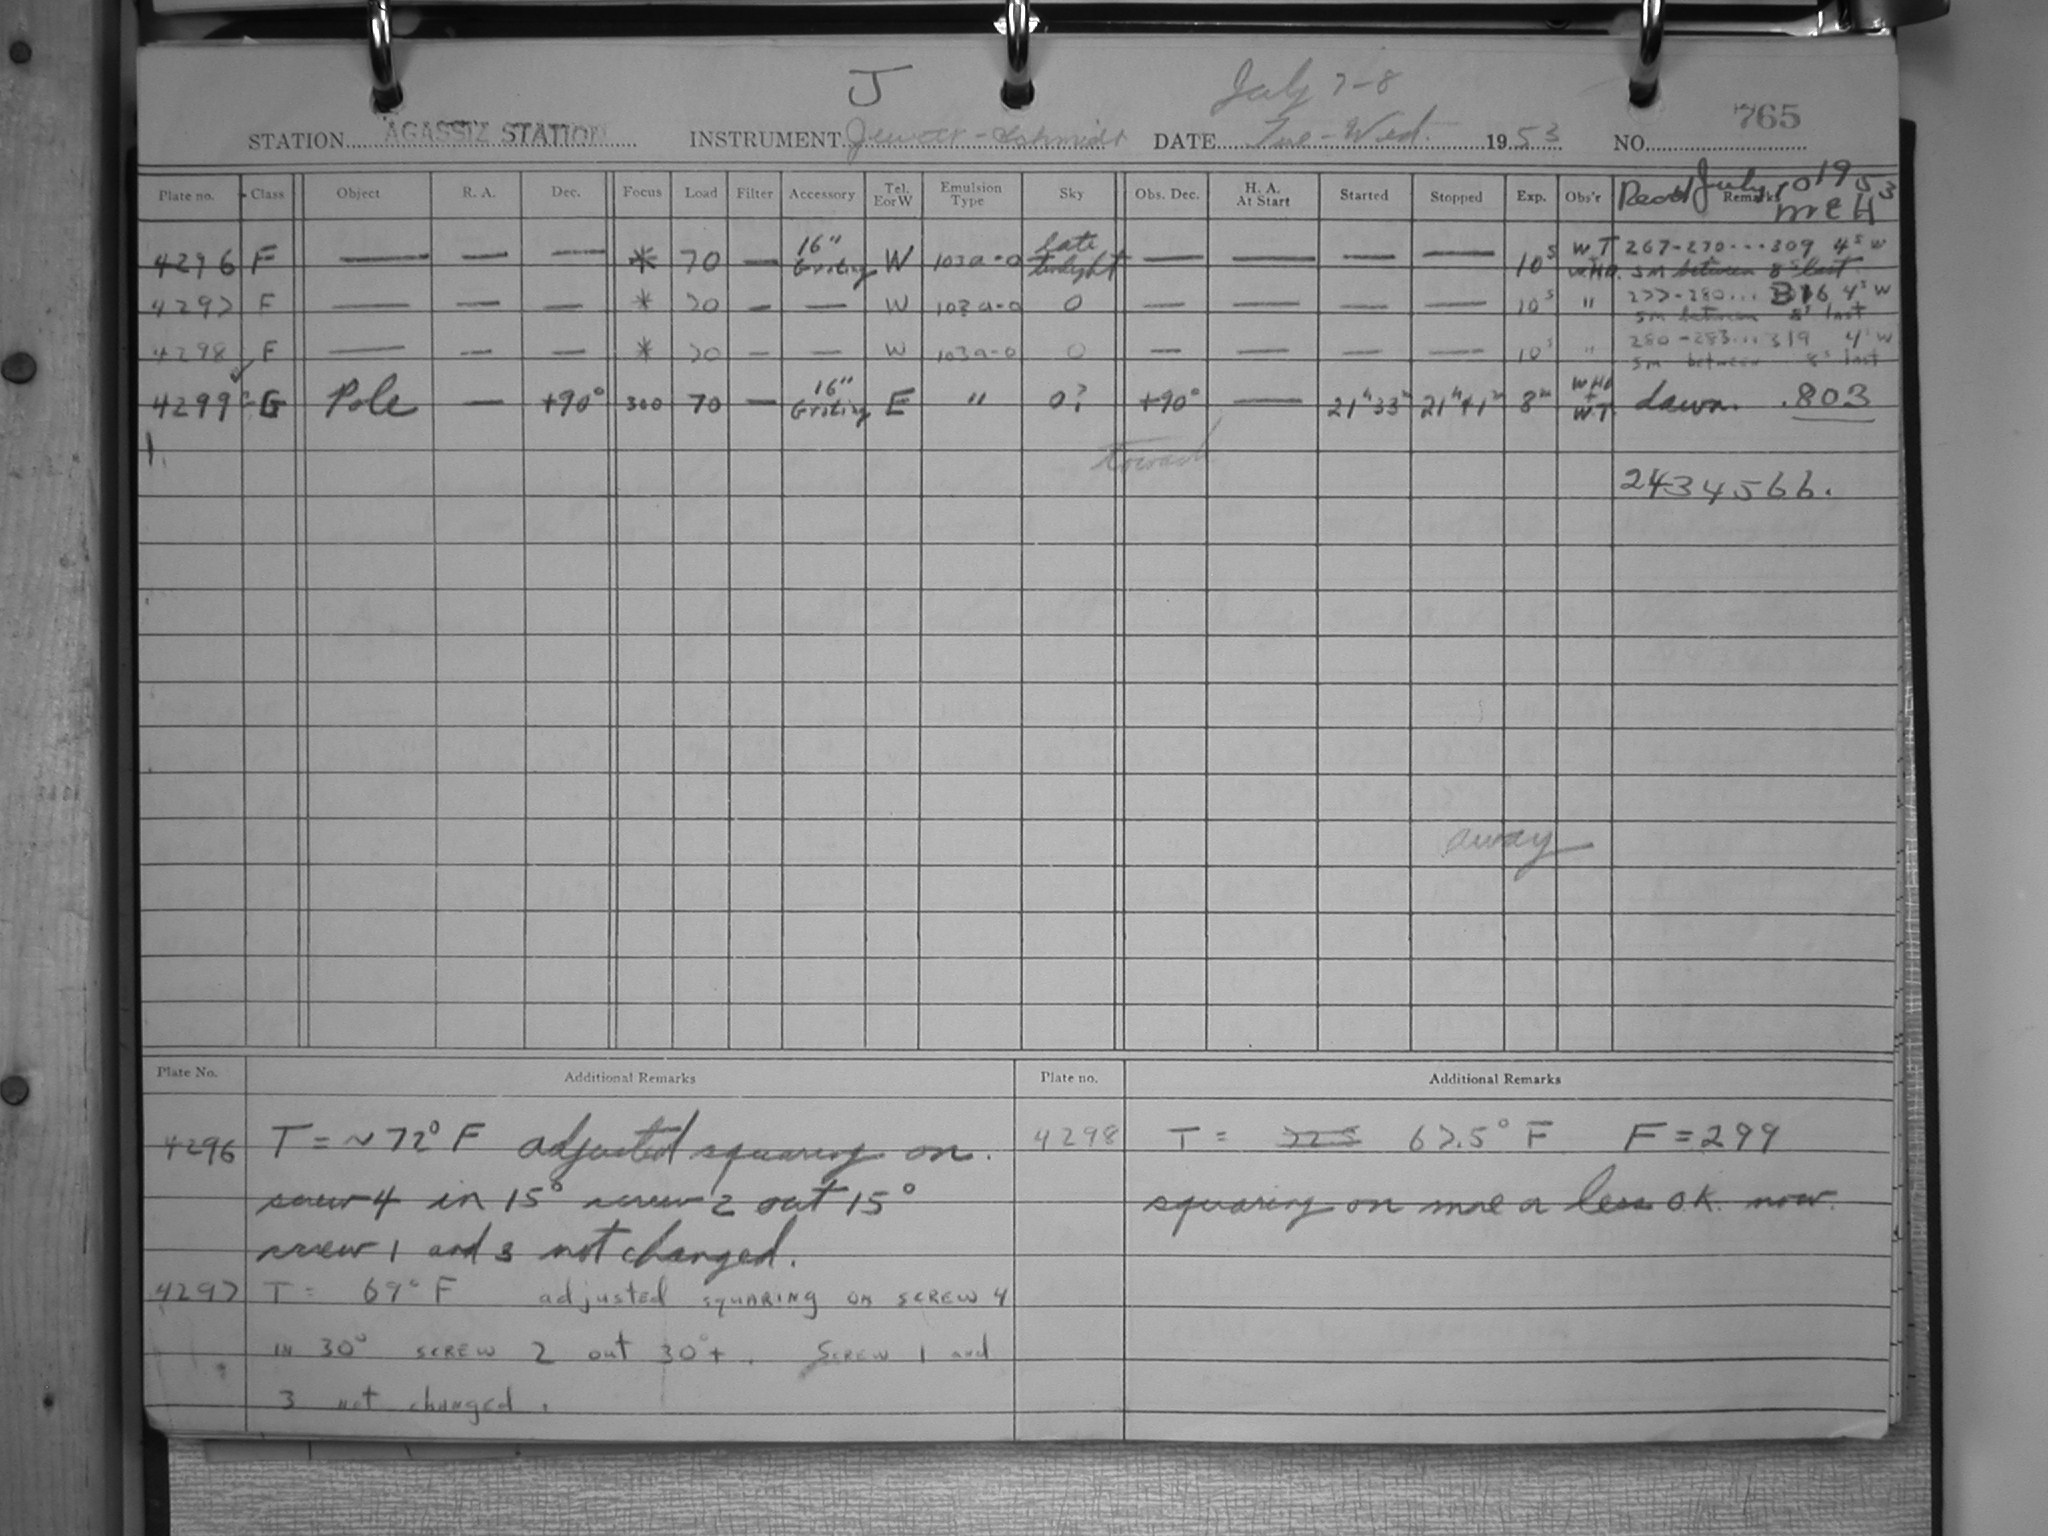 J July 7-8
STATION AGASSIZ STATION INSTRUMENT Jewett-Schmidt DATE Tue-Wed. 1953 NO. 765
Plate no. Class Object R. A. Dec. Focus Load Filter Accessory Tel. E or W Emulsion Type Sky Obs. Dec. H. A. At Start Started Stopped Exp. Obs'r Remarks
Read July 10 1953
MEH
4296 F — — — * 70 — 16" Grating W 103a-0 late twilight — — — — 10s WT WHH. 267-270...309 4s W
5m between 8s last
4297 F — — — * 70 — — W 103a-0 0 — — — — 10s " 277-280... 316 4s W
5m between 8s last
4298 F — — — * 70 — — W 103a-0 0 — — — — 10s " 280-283...319 4s W
5m between 8s last
4299 G Pole — +90° 300 70 — 16" Grating E " 0? +90° — 21h33m 21h41m 8m WHH + W.T. dawn. .803
toward
2434566.
away
Plate No. Additional Remarks Plate no. Additional Remarks
4296 T = ~72° F adjusted squaring on.
screw 4 in 15° screw 2 out 15°
screw 1 and 3 not changed.
4297 T = 69° F adjusted squaring on screw 4
in 30° screw 2 out 30+. Screw 1 and
3 not changed.
4298 T = 67.5° F F = 299
squaring on more or less O.K. now.